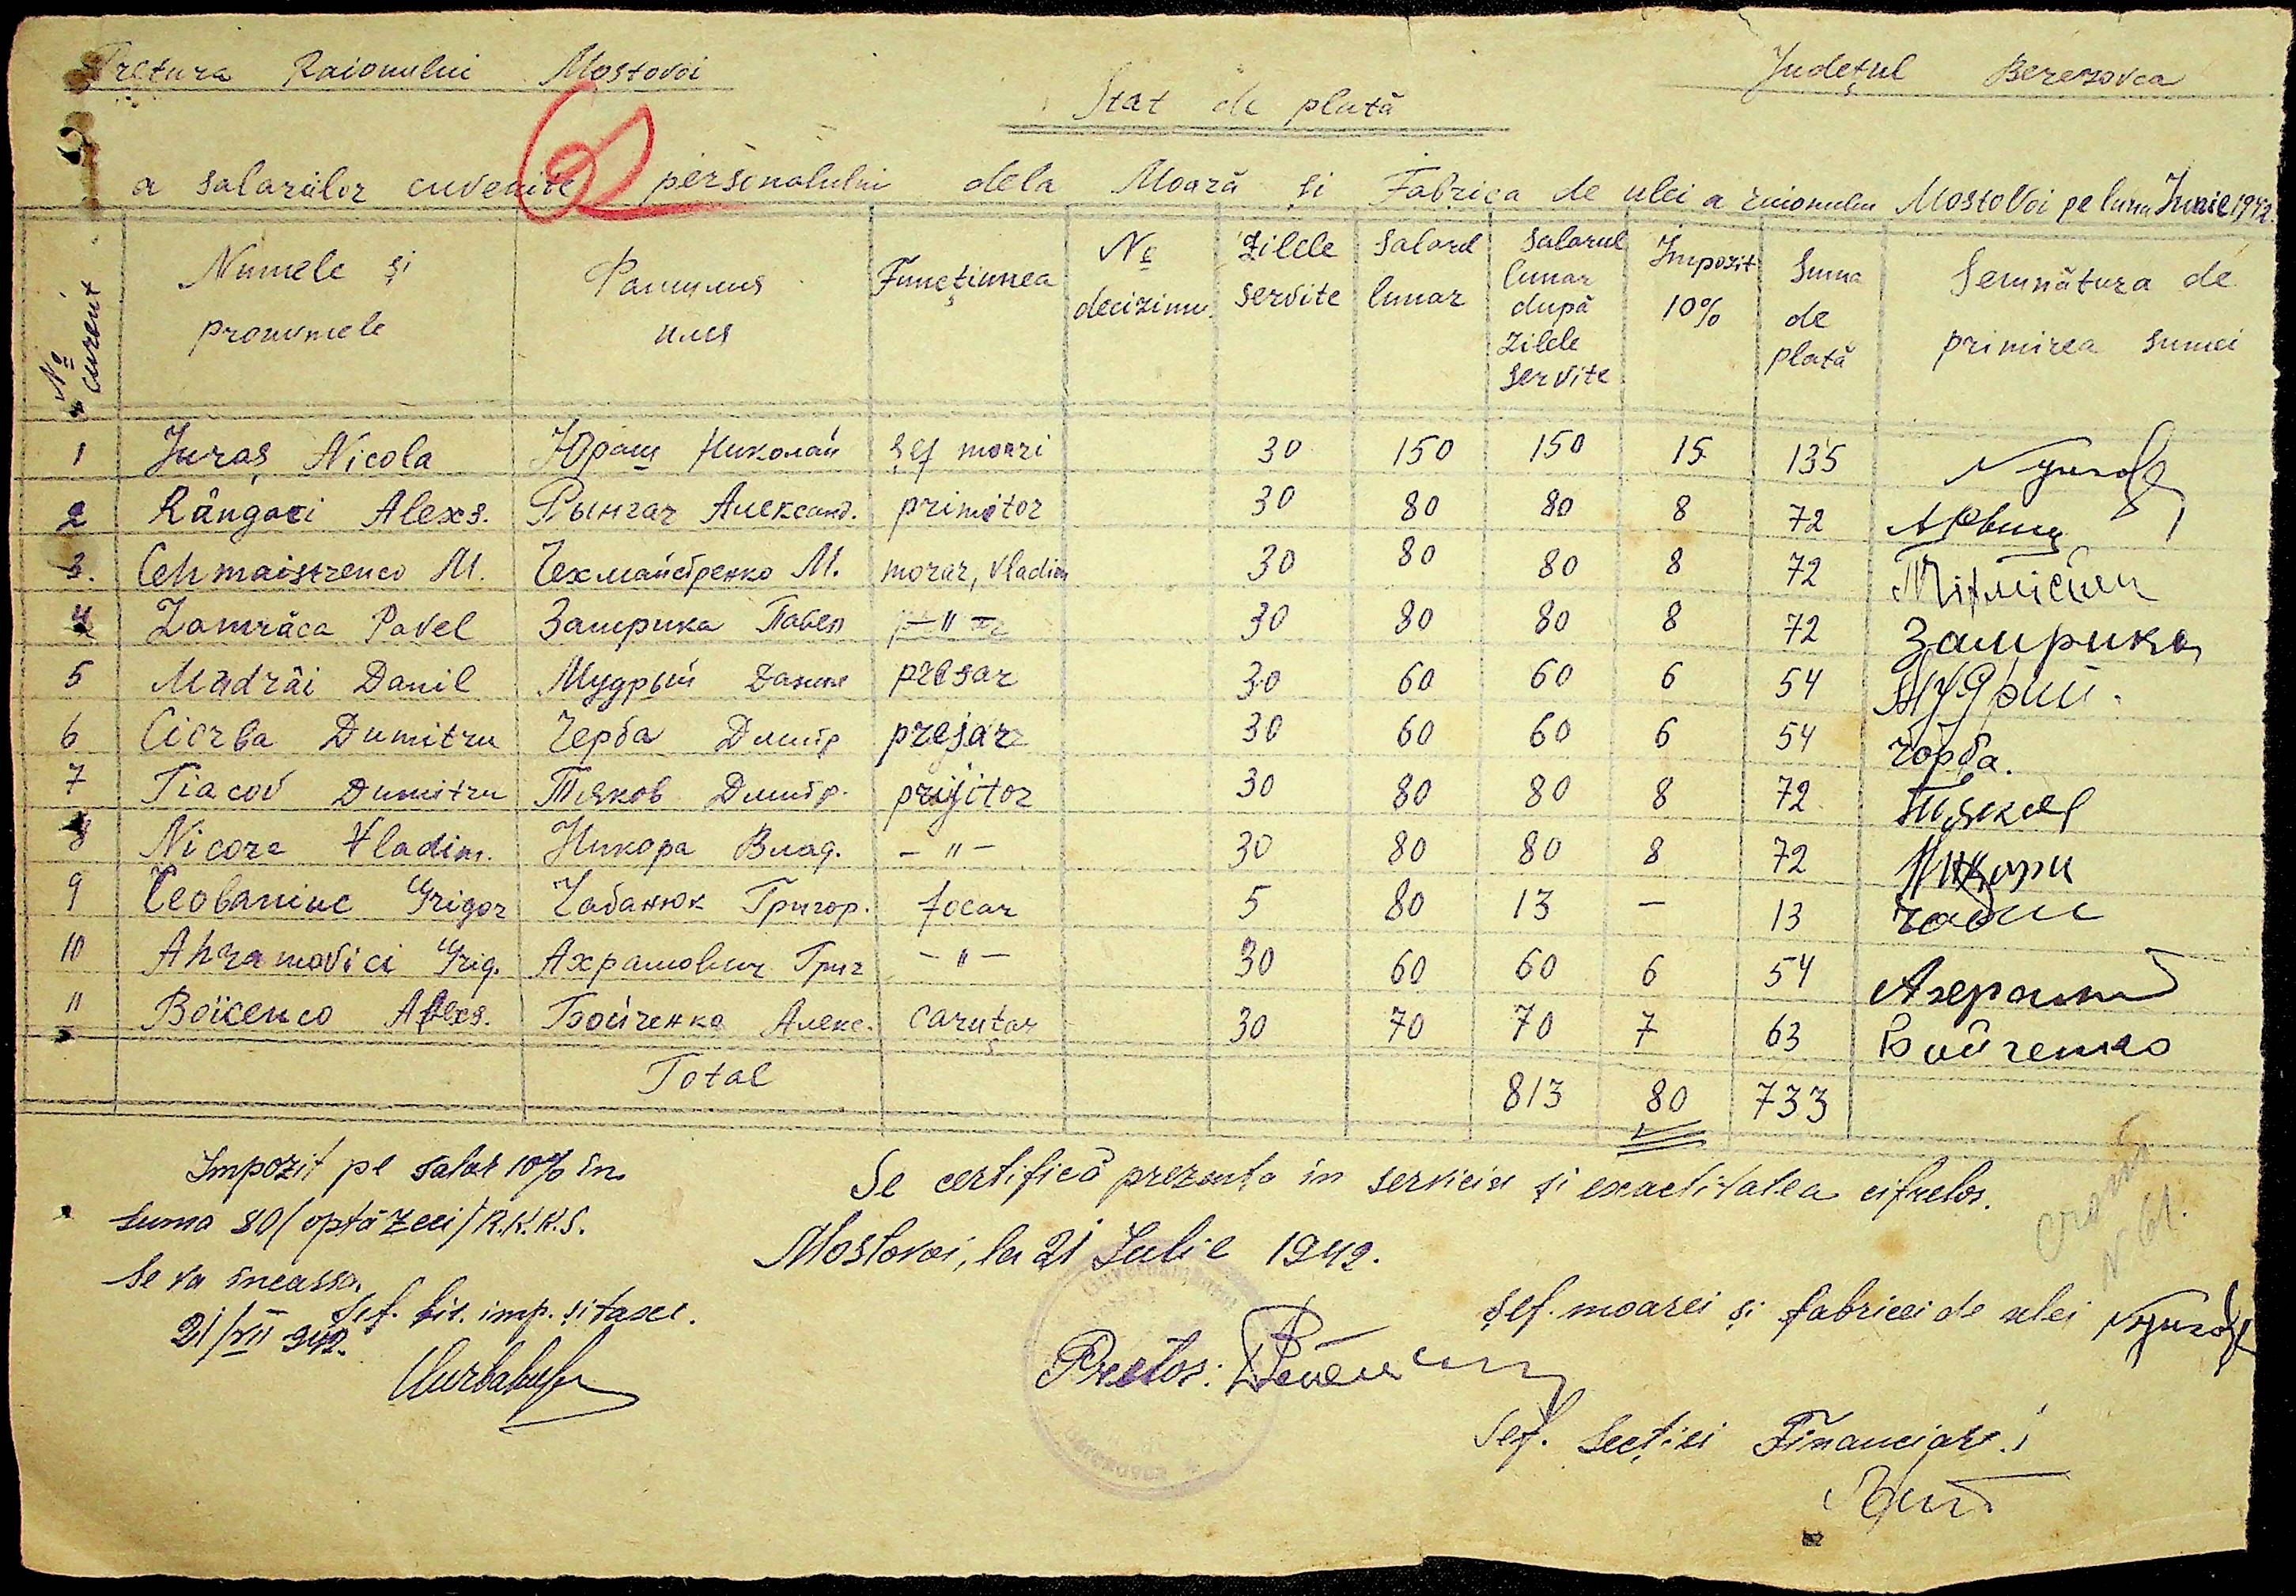 Pretura Raionului Mostovoi
Județul Berezovca
Stat de plată
a salariilor cuvenite personalului dela Moară și Fabrica de ulei a raionului Mostovoi pe luna Iunie 1942
No curent Numele și pronumele Фамилия имя Funcțiunea No deciziunii Zilele servite Salarul lunar Salarul lunar după zilele servite Impozit 10% Suma de plată Semnătura de primirea sumei
1 Juraș Nicola Юраш Николай șef moari 30 150 150 15 135
2 Rângaci Alexs. Рынгач Александ. primitor 30 80 80 8 72
3. Cehmaistrenco M. Чехмайстренко М. morar, Vladim 30 80 80 8 72
4 Zamrăca Pavel Замрика Павел — " — 30 80 80 8 72 Замрика
5 Madrăi Danil Мудрый Данил presar 30 60 60 6 54 Мудрий.
6 Cierba Dumitru Черба Дмитр presar 30 60 60 6 54 Чорба.
7 Tiacov Dumitru Тяков Дмитр. prijitor 30 80 80 8 72 Тяков
8 Nicora Vladim. Никора Влад. — " — 30 80 80 8 72 Никора
9 Ceobaniuc Grigor Чабанюк Григор. focar 5 80 13 — 13
10 Ahramovici Grig. Ахрамович Григ — " — 30 60 60 6 54
11 Boicenco Alexs. Бойченко Алекс. caruțar 30 70 70 7 63 Бойченко
Total 813 80 733
Impozit pe salar 10% în
suma 80 (optă zeci) R.K.K.S.
se va încassa.
21/VII 942. Șef. bir. imp. și taxe.
Se certifică prezenta în serviciu și exactitatea cifrelor.
Mostovoi, la 21 Iulie 1942.
Pretor:
șef. moarei și fabricei de ulei
Șef. Secției Financiare